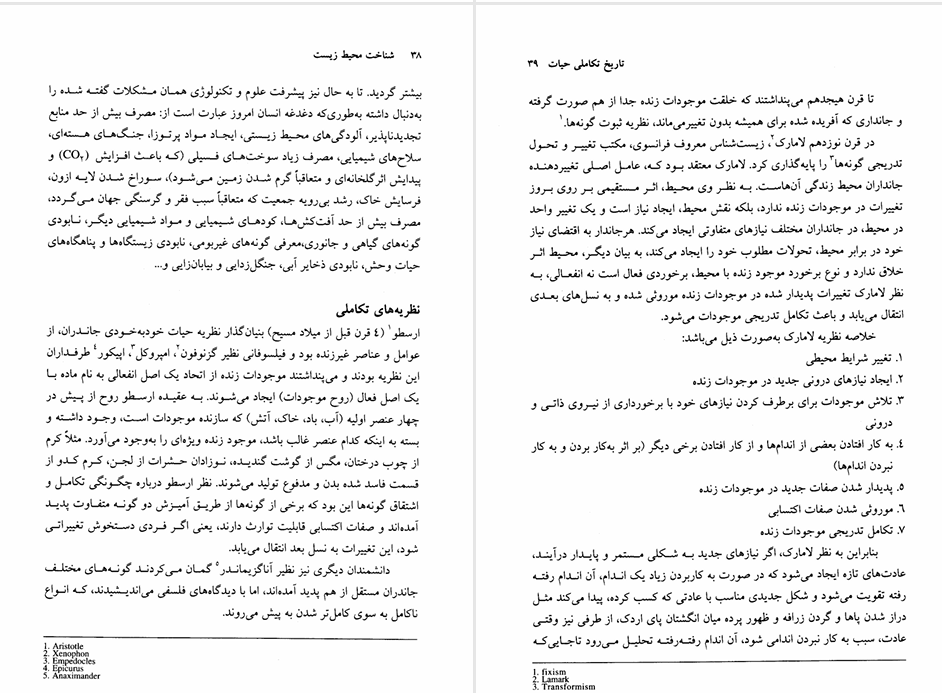 ۳۸ شناخت محیط زیست
بیشتر گردید. تا به حال نیز پیشرفت علوم و تکنولوژی همان مشکلات گفته شده را
به‌دنبال داشته به‌طوری‌که دغدغه انسان امروز عبارت است از: مصرف بیش از حد منابع
تجدیدناپذیر، آلودگی‌های محیط زیستی، ایجاد مواد پرتوزا، جنگ‌های هسته‌ای،
سلاح‌های شیمیایی، مصرف زیاد سوخت‌های فسیلی (که باعث افزایش (CO₂) و
پیدایش اثرگلخانه‌ای و متعاقباً گرم شدن زمین می‌شود)، سوراخ شدن لایه ازون،
فرسایش خاک، رشد بی‌رویه جمعیت که متعاقباً سبب فقر و گرسنگی جهان می‌گردد،
مصرف بیش از حد آفت‌کش‌ها، کودهای شیمیایی و مواد شیمیایی دیگر، نابودی
گونه‌های گیاهی و جانوری،معرفی گونه‌های غیربومی، نابودی زیستگاه‌ها و پناهگاه‌های
حیات وحش، نابودی ذخایر آبی، جنگل‌زدایی و بیابان‌زایی و...
نظریه‌های تکاملی
ارسطو۱ (٤ قرن قبل از میلاد مسیح) بنیان‌گذار نظریه حیات خودبه‌خودی جانداران، از
عوامل و عناصر غیرزنده بود و فیلسوفانی نظیر گزنوفون۲، امپروکل۳، اپیکور٤ طرفداران
این نظریه بودند و می‌پنداشتند موجودات زنده از اتحاد یک اصل انفعالی به نام ماده با
یک اصل فعال (روح موجودات) ایجاد می‌شوند. به عقیده ارسطو روح از پیش در
چهار عنصر اولیه (آب، باد، خاک، آتش) که سازنده موجودات است، وجود داشته و
بسته به اینکه کدام عنصر غالب باشد، موجود زنده ویژه‌ای را به‌وجود می‌آورد. مثلاً کرم
از چوب درختان، مگس از گوشت گندیده، نوزادان حشرات از لجن، کرم کدو از
قسمت فاسد شده بدن و مدفوع تولید می‌شوند. نظر ارسطو درباره چگونگی تکامل و
اشتقاق گونه‌ها این بود که برخی از گونه‌ها از طریق آمیزش دو گونه متفاوت پدید
آمده‌اند و صفات اکتسابی قابلیت توارث دارند، یعنی اگر فردی دستخوش تغییراتی
شود، این تغییرات به نسل بعد انتقال می‌یابد.
دانشمندان دیگری نیز نظیر آناگزیماندر۵ گمان می‌کردند گونه‌های مختلف
جاندران مستقل از هم پدید آمده‌اند، اما با دیدگاه‌های فلسفی می‌اندیشیدند، که انواع
ناکامل به سوی کامل‌تر شدن به پیش می‌روند.
1. Aristotle
2. Xenophon
3. Empedocles
4. Epicurus
5. Anaximander
تاریخ تکاملی حیات ۳۹
تا قرن هیجدهم می‌پنداشتند که خلقت موجودات زنده جدا از هم صورت گرفته
و جانداری که آفریده شده برای همیشه بدون تغییرمی‌ماند، نظریه ثبوت گونه‌ها.۱
در قرن نوزدهم لامارک۲، زیست‌شناس معروف فرانسوی، مکتب تغییر و تحول
تدریجی گونه‌ها۳ را پایه‌گذاری کرد. لامارک معتقد بود که، عامل اصلی تغییردهنده
جانداران محیط زندگی آن‌هاست. به نظر وی محیط، اثر مستقیمی بر روی بروز
تغییرات در موجودات زنده ندارد، بلکه نقش محیط، ایجاد نیاز است و یک تغییر واحد
در محیط، در جانداران مختلف نیازهای متفاوتی ایجاد می‌کند. هرجاندار به اقتضای نیاز
خود در برابر محیط، تحولات مطلوب خود را ایجاد می‌کند، به بیان دیگر، محیط اثر
خلاق ندارد و نوع برخورد موجود زنده با محیط، برخوردی فعال است نه انفعالی، به
نظر لامارک تغییرات پدیدار شده در موجودات زنده موروثی شده و به نسل‌های بعدی
انتقال می‌یابد و باعث تکامل تدریجی موجودات می‌شود.
خلاصه نظریه لامارک به‌صورت ذیل می‌باشد:
۱. تغییر شرایط محیطی
۲. ایجاد نیازهای درونی جدید در موجودات زنده
۳. تلاش موجودات برای برطرف کردن نیازهای خود با برخورداری از نیروی ذاتی و
درونی
٤. به کار افتادن بعضی از اندام‌ها و از کار افتادن برخی دیگر (بر اثر به‌کار بردن و به کار
نبردن اندام‌ها)
۵. پدیدار شدن صفات جدید در موجودات زنده
۶. موروثی شدن صفات اکتسابی
۷. تکامل تدریجی موجودات زنده
بنابراین به نظر لامارک، اگر نیازهای جدید به شکلی مستمر و پایدار درآیند،
عادت‌های تازه ایجاد می‌شود که در صورت به کاربردن زیاد یک اندام، آن اندام رفته
رفته تقویت می‌شود و شکل جدیدی مناسب با عادتی که کسب کرده، پیدا می‌کند مثل
دراز شدن پاها و گردن زرافه و ظهور پرده میان انگشتان پای اردک، از طرفی نیز وقتی
عادت، سبب به کار نبردن اندامی شود، آن اندام رفته‌رفته تحلیل می‌رود تاجایی‌که
1. fixism
2. Lamark
3. Transformism